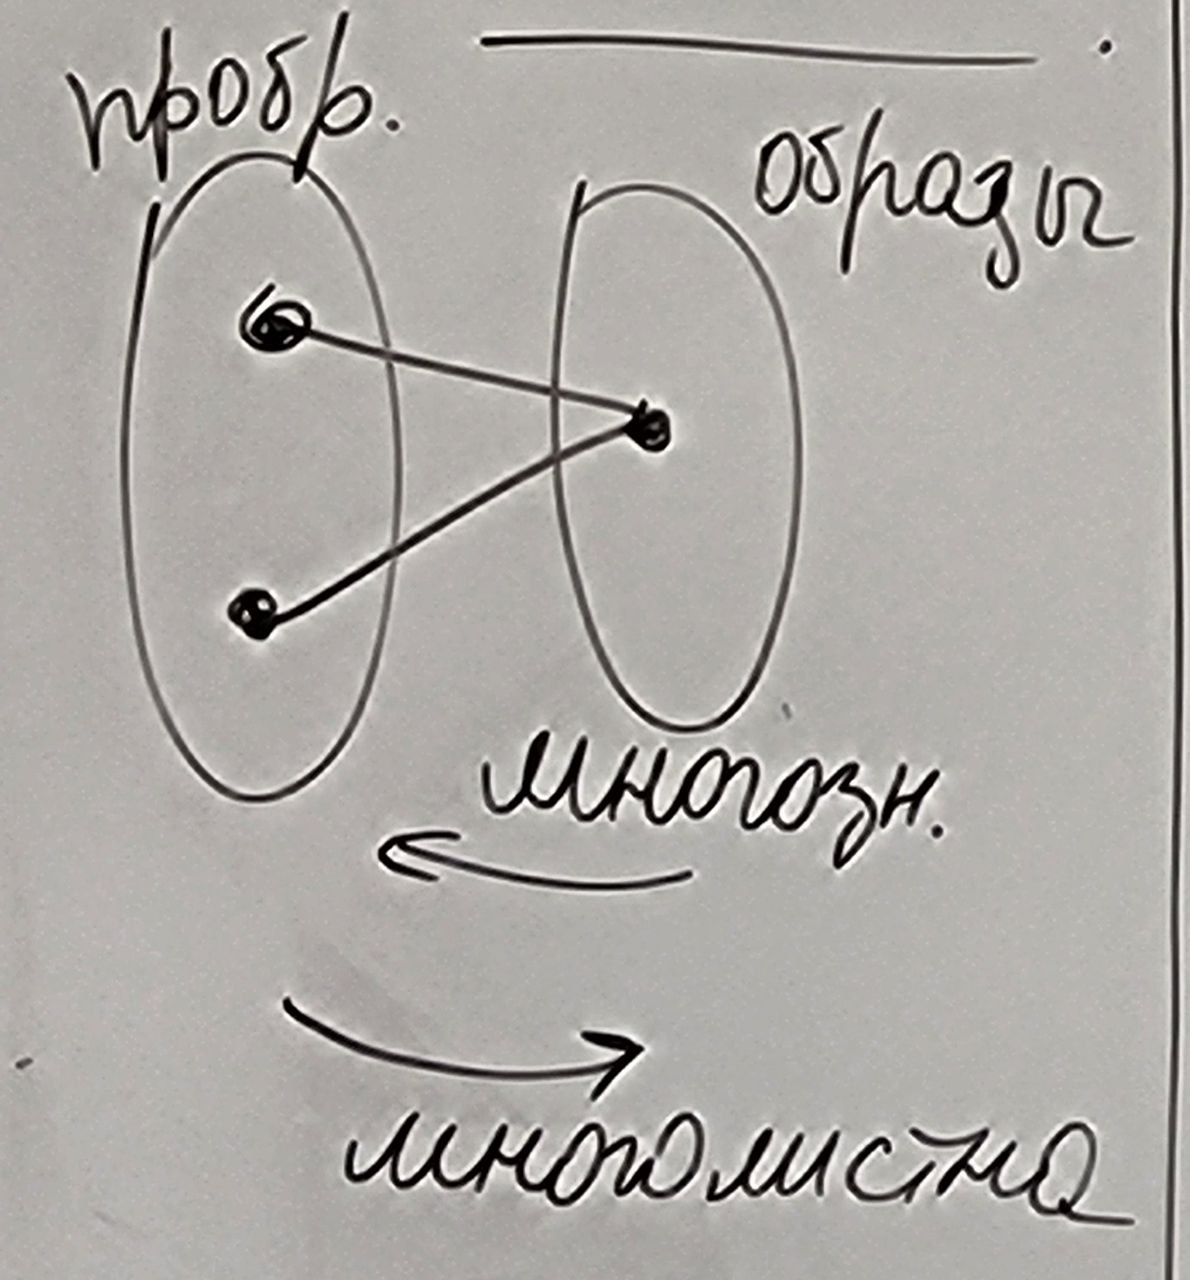 прообр.
образы
многозн.
многолистна